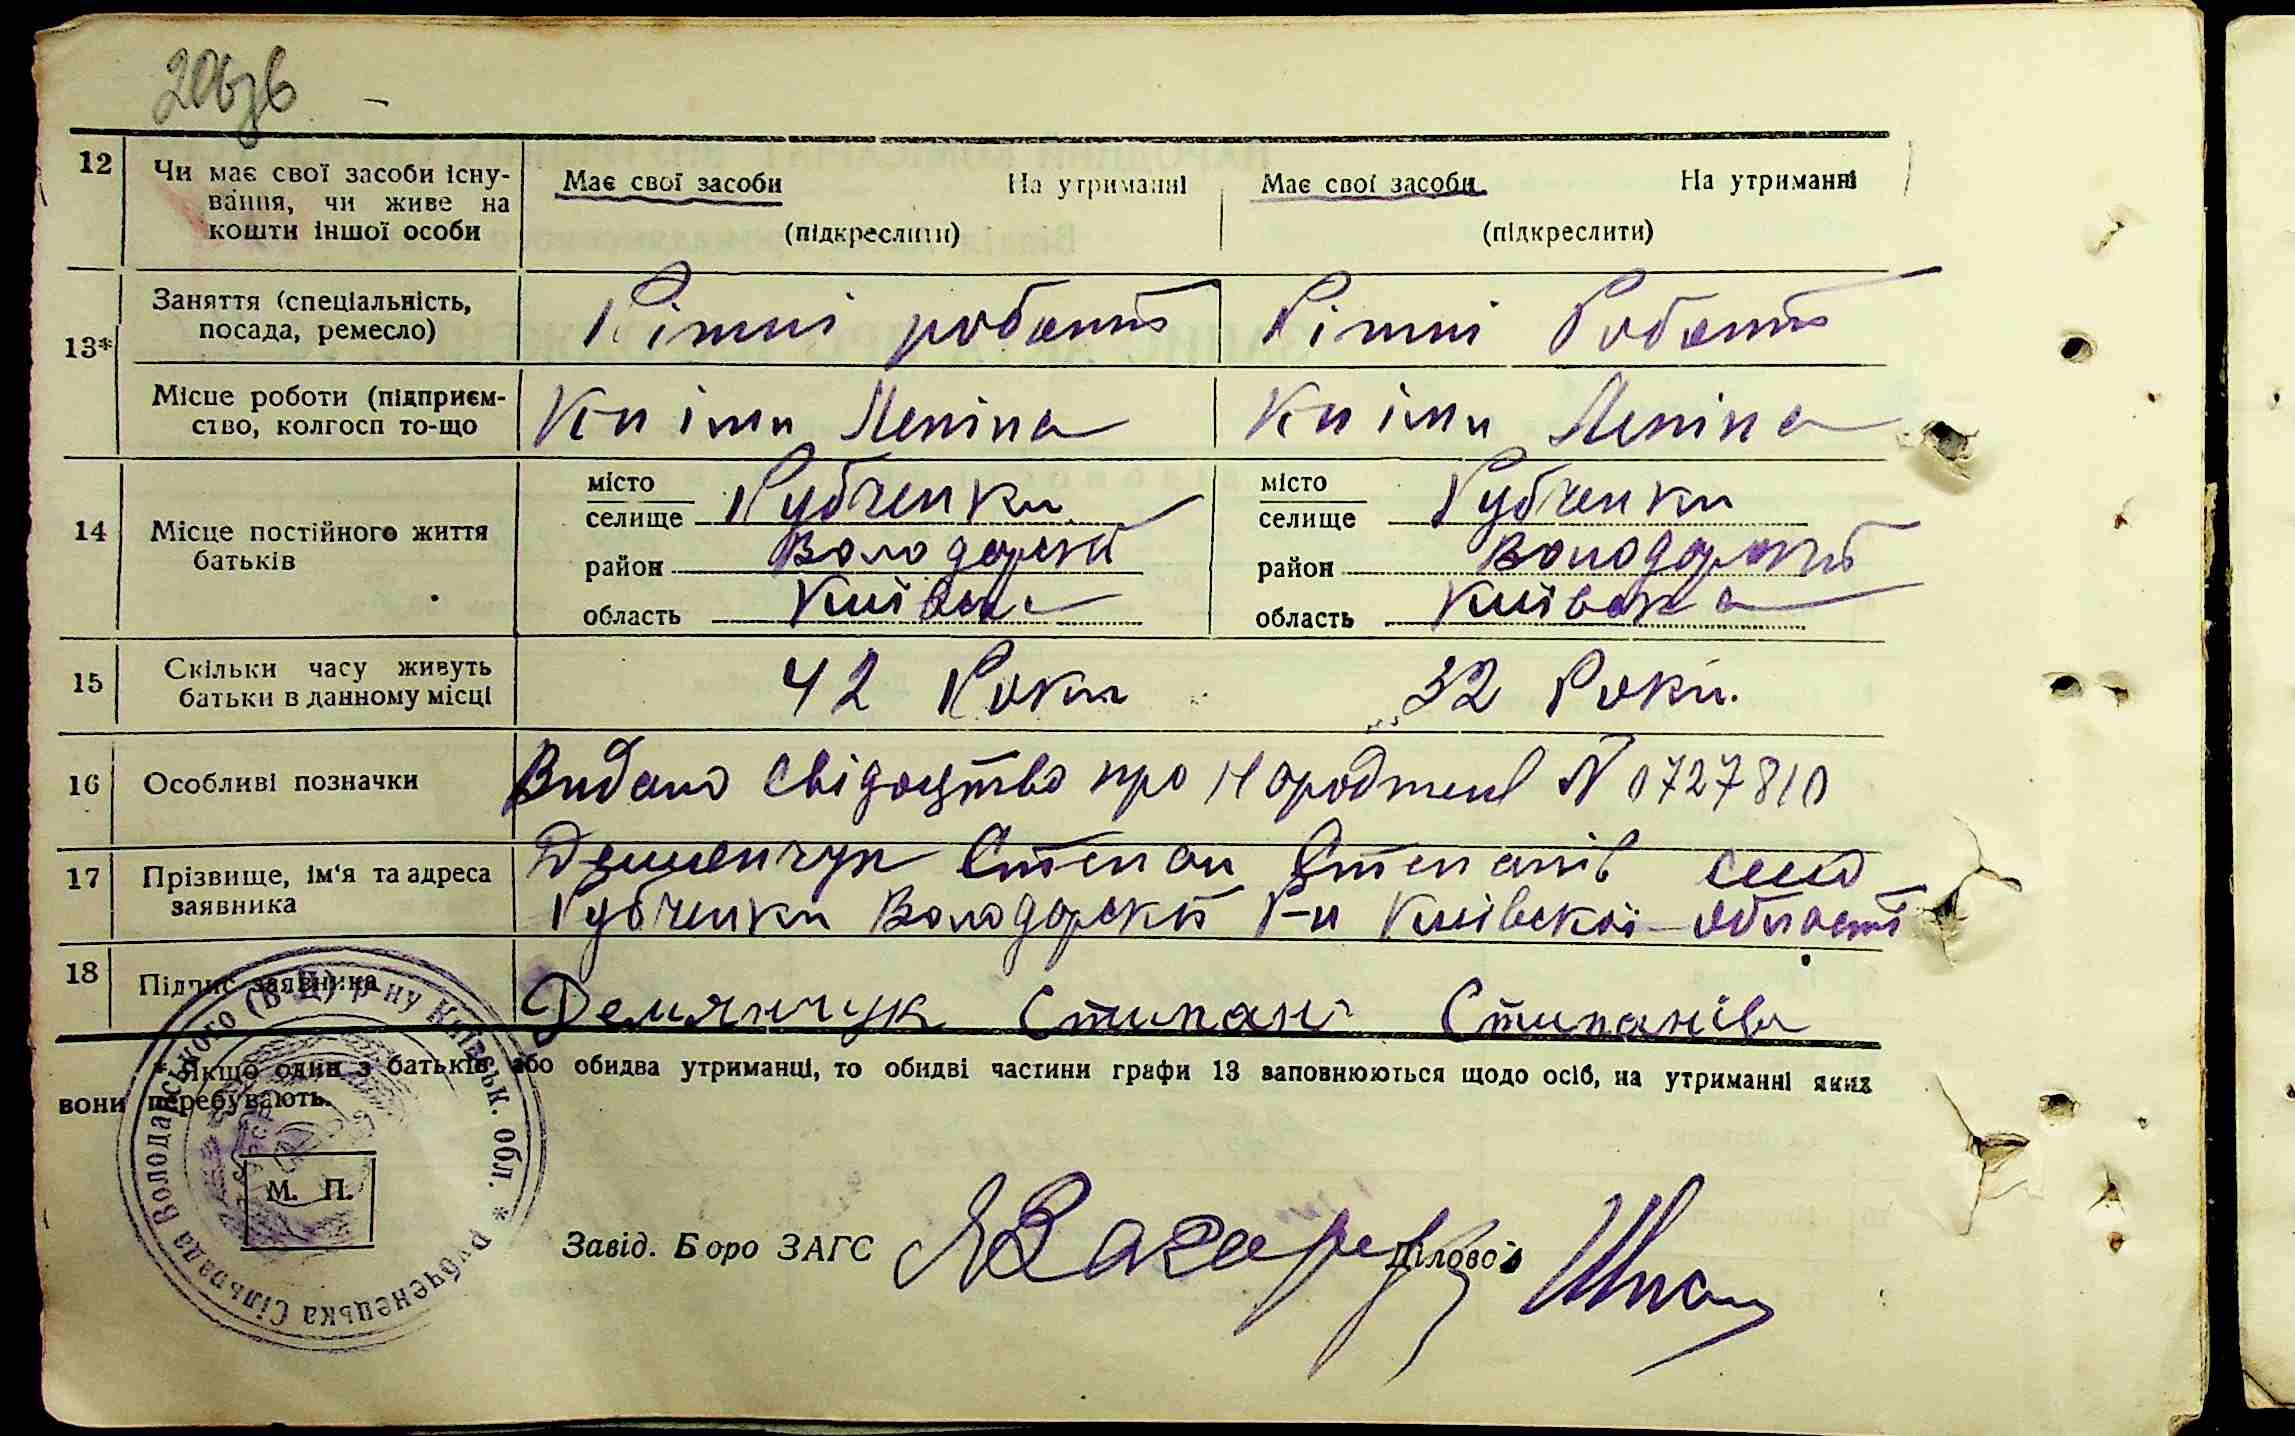 206зв
12 Чи має свої засоби існу-
вання, чи живе на
кошти іншої особи
Має свої засоби На утриманні Має свої засоби На утриманні
(підкреслити) (підкреслити)
13*
Заняття (спеціальність,
посада, ремесло)
Рітні роботи Рітні Роботи
Місце роботи (підприєм-
ство, колгосп то-що
К-п імни Леніна К-п імни Леніна
14 Місце постійного життя
батьків
місто
селище Рубченки місто
селище Рубченки
район Володарский район Володарский
область Київска область Київска
15 Скільки часу живуть
батьки в данному місці
42 Роки 32 Роки.
16 Особливі позначки
Видано свідоцтво про народженя N 0727810
17 Прізвище, ім'я та адреса
заявника
Демянчук Степан Степанів село
Рубченки Володарский Р-н Київскої області
18 Підпис заявника
Демянчук Стипан Стипанівич
* Якщо один з батьків або обидва утриманці, то обидві частини графи 13 заповнюються щодо осіб, на утриманні яких
вони перебувають.
М. П.
Завід. Бюро ЗАГС
Діловод
Рубченецька Сільрада Володарського (В-Д) р-ну Київськ. обл. *